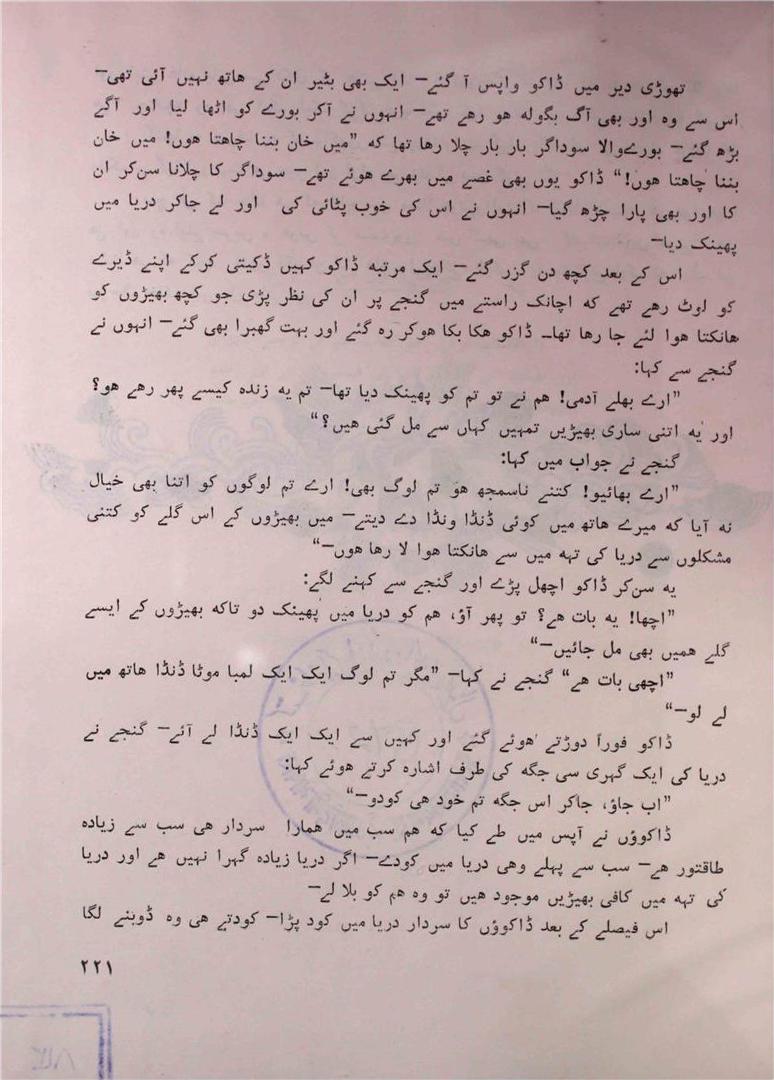 تھوڑی دیر میں ڈاکو واپس آ گئے— ایک بھی بٹیر ان کے ھاتھ نہیں آئی تھی—
اس سے وہ اور بھی آگ بگولہ ھو رھے تھے— انہوں نے آکر بورے کو اٹھا لیا اور آگے
بڑھ گئے— بورےوالا سوداگر بار بار چلا رھا تھا کہ ”میں خان بننا چاھتا ھوں! میں خان
بننا چاھتا ھوں!“ ڈاکو یوں بھی غصے میں بھرے ھوئے تھے— سوداگر کا چلانا سن‌کر ان
کا اور بھی پارا چڑھ گیا— انہوں نے اس کی خوب پٹائی کی اور لے جاکر دریا میں
پھینک دیا—
اس کے بعد کچھ دن گزر گئے— ایک مرتبہ ڈاکو کہیں ڈکیتی کرکے اپنے ڈیرے
کو لوٹ رھے تھے کہ اچانک راستے میں گنجے پر ان کی نظر پڑی جو کچھ بھیڑوں کو
ھانکتا ھوا لئے جا رھا تھا۔ ڈاکو ھکا بکا ھوکر رہ گئے اور بہت گھبرا بھی گئے— انہوں نے
گنجے سے کہا:
”ارے بھلے آدمی! ھم نے تو تم کو پھینک دیا تھا— تم یہ زندہ کیسے پھر رھے ھو؟
اور یہ اتنی ساری بھیڑیں تمہیں کہاں سے مل گئی ھیں؟“
گنجے نے جواب میں کہا:
”ارے بھائیو! کتنے ناسمجھ ھو تم لوگ بھی! ارے تم لوگوں کو اتنا بھی خیال
نہ آیا کہ میرے ھاتھ میں کوئی ڈنڈا ونڈا دے دیتے— میں بھیڑوں کے اس گلے کو کتنی
مشکلوں سے دریا کی تہہ میں سے ھانکتا ھوا لا رھا ھوں—“
یہ سن‌کر ڈاکو اچھل پڑے اور گنجے سے کہنے لگے:
”اچھا! یہ بات ھے؟ تو پھر آؤ، ھم کو دریا میں پھینک دو تاکہ بھیڑوں کے ایسے
گلے ھمیں بھی مل جائیں—“
”اچھی بات ھے“ گنجے نے کہا— ”مگر تم لوگ ایک ایک لمبا موٹا ڈنڈا ھاتھ میں
لے لو—“
ڈاکو فوراً دوڑتے ھوئے گئے اور کہیں سے ایک ایک ڈنڈا لے آئے— گنجے نے
دریا کی ایک گہری سی جگہ کی طرف اشارہ کرتے ھوئے کہا:
”اب جاؤ، جاکر اس جگہ تم خود ھی کودو—“
ڈاکوؤں نے آپس میں طے کیا کہ ھم سب میں ھمارا سردار ھی سب سے زیادہ
طاقتور ھے— سب سے پہلے وھی دریا میں کودے— اگر دریا زیادہ گہرا نہیں ھے اور دریا
کی تہہ میں کافی بھیڑیں موجود ھیں تو وہ ھم کو بلا لے—
اس فیصلے کے بعد ڈاکوؤں کا سردار دریا میں کود پڑا— کودتے ھی وہ ڈوبنے لگا
۲۲۱